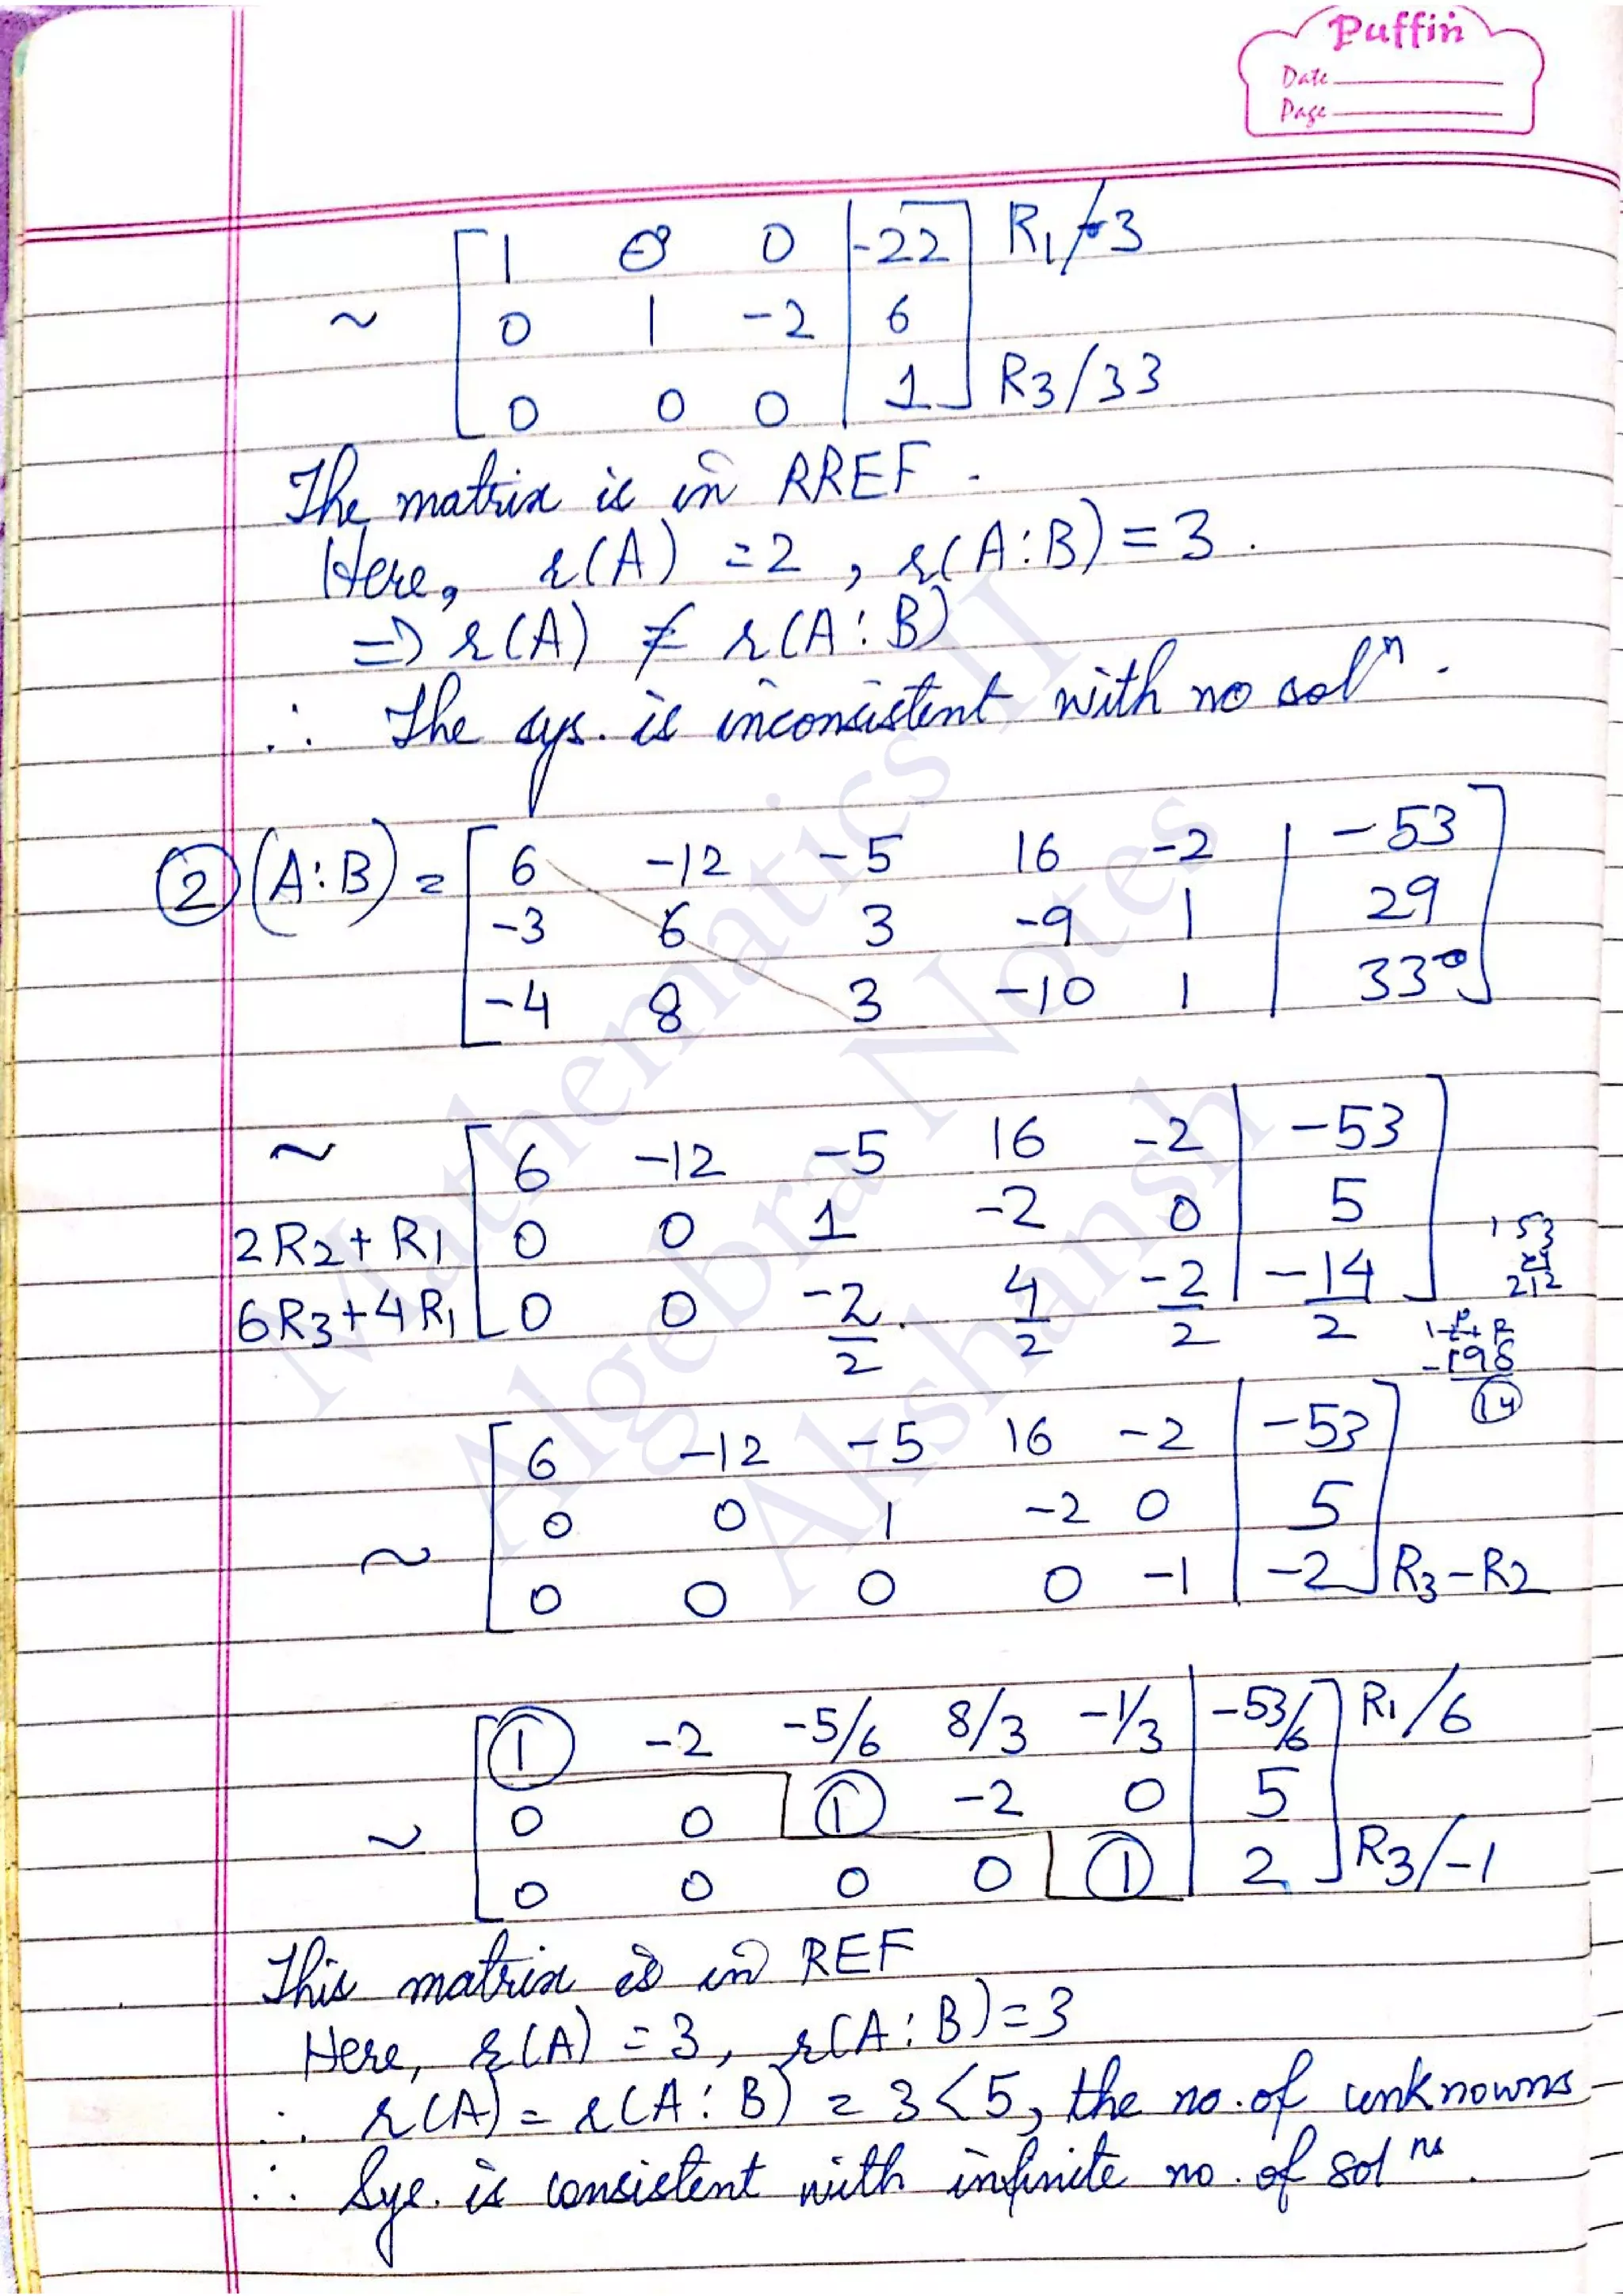 Puffin
Date
Page
~ [ 1 0 0 | -22 ] R1/-3
[ 0 1 -2 | 6 ]
[ 0 0 0 | 1 ] R3/33
The matrix is in RREF.
Here, r(A) = 2, r(A:B) = 3.
=> r(A) ≠ r(A:B)
∴ The sys. is inconsistent with no solⁿ.
② (A:B) = [ 6 -12 -5 16 -2 | -53 ]
[ -3 6 3 -9 1 | 29 ]
[ -4 8 3 -10 1 | 33 ]
~ [ 6 -12 -5 16 -2 | -53 ]
2R2 + R1 [ 0 0 1 -2 0 | 5 ]
6R3 + 4R1 [ 0 0 -2/2 4/2 -2/2 | -14/2 ]
153
212
-198
14
[ 6 -12 -5 16 -2 | -53 ]
[ 0 0 1 -2 0 | 5 ]
~ [ 0 0 0 0 -1 | -2 ] R3-R2
[ 1 -2 -5/6 8/3 -1/3 | -53/6 ] R1/6
[ 0 0 1 -2 0 | 5 ]
~ [ 0 0 0 0 1 | 2 ] R3/-1
This matrix is in REF
Here, r(A) = 3, r(A:B) = 3
∴ r(A) = r(A:B) = 3 < 5, the no. of unknowns
∴ Sys. is consistent with infinite no. of solⁿˢ.
Mathematics II
Algebra Notes
Akshansh